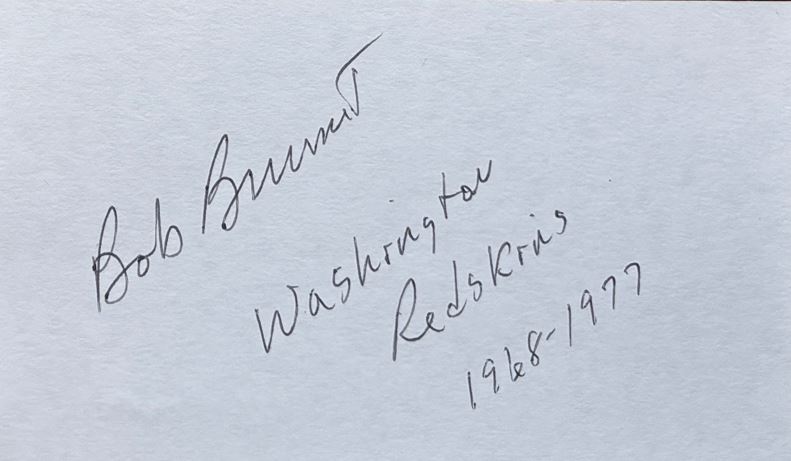 Bob Brunet
Washington
Redskins
1968-1977